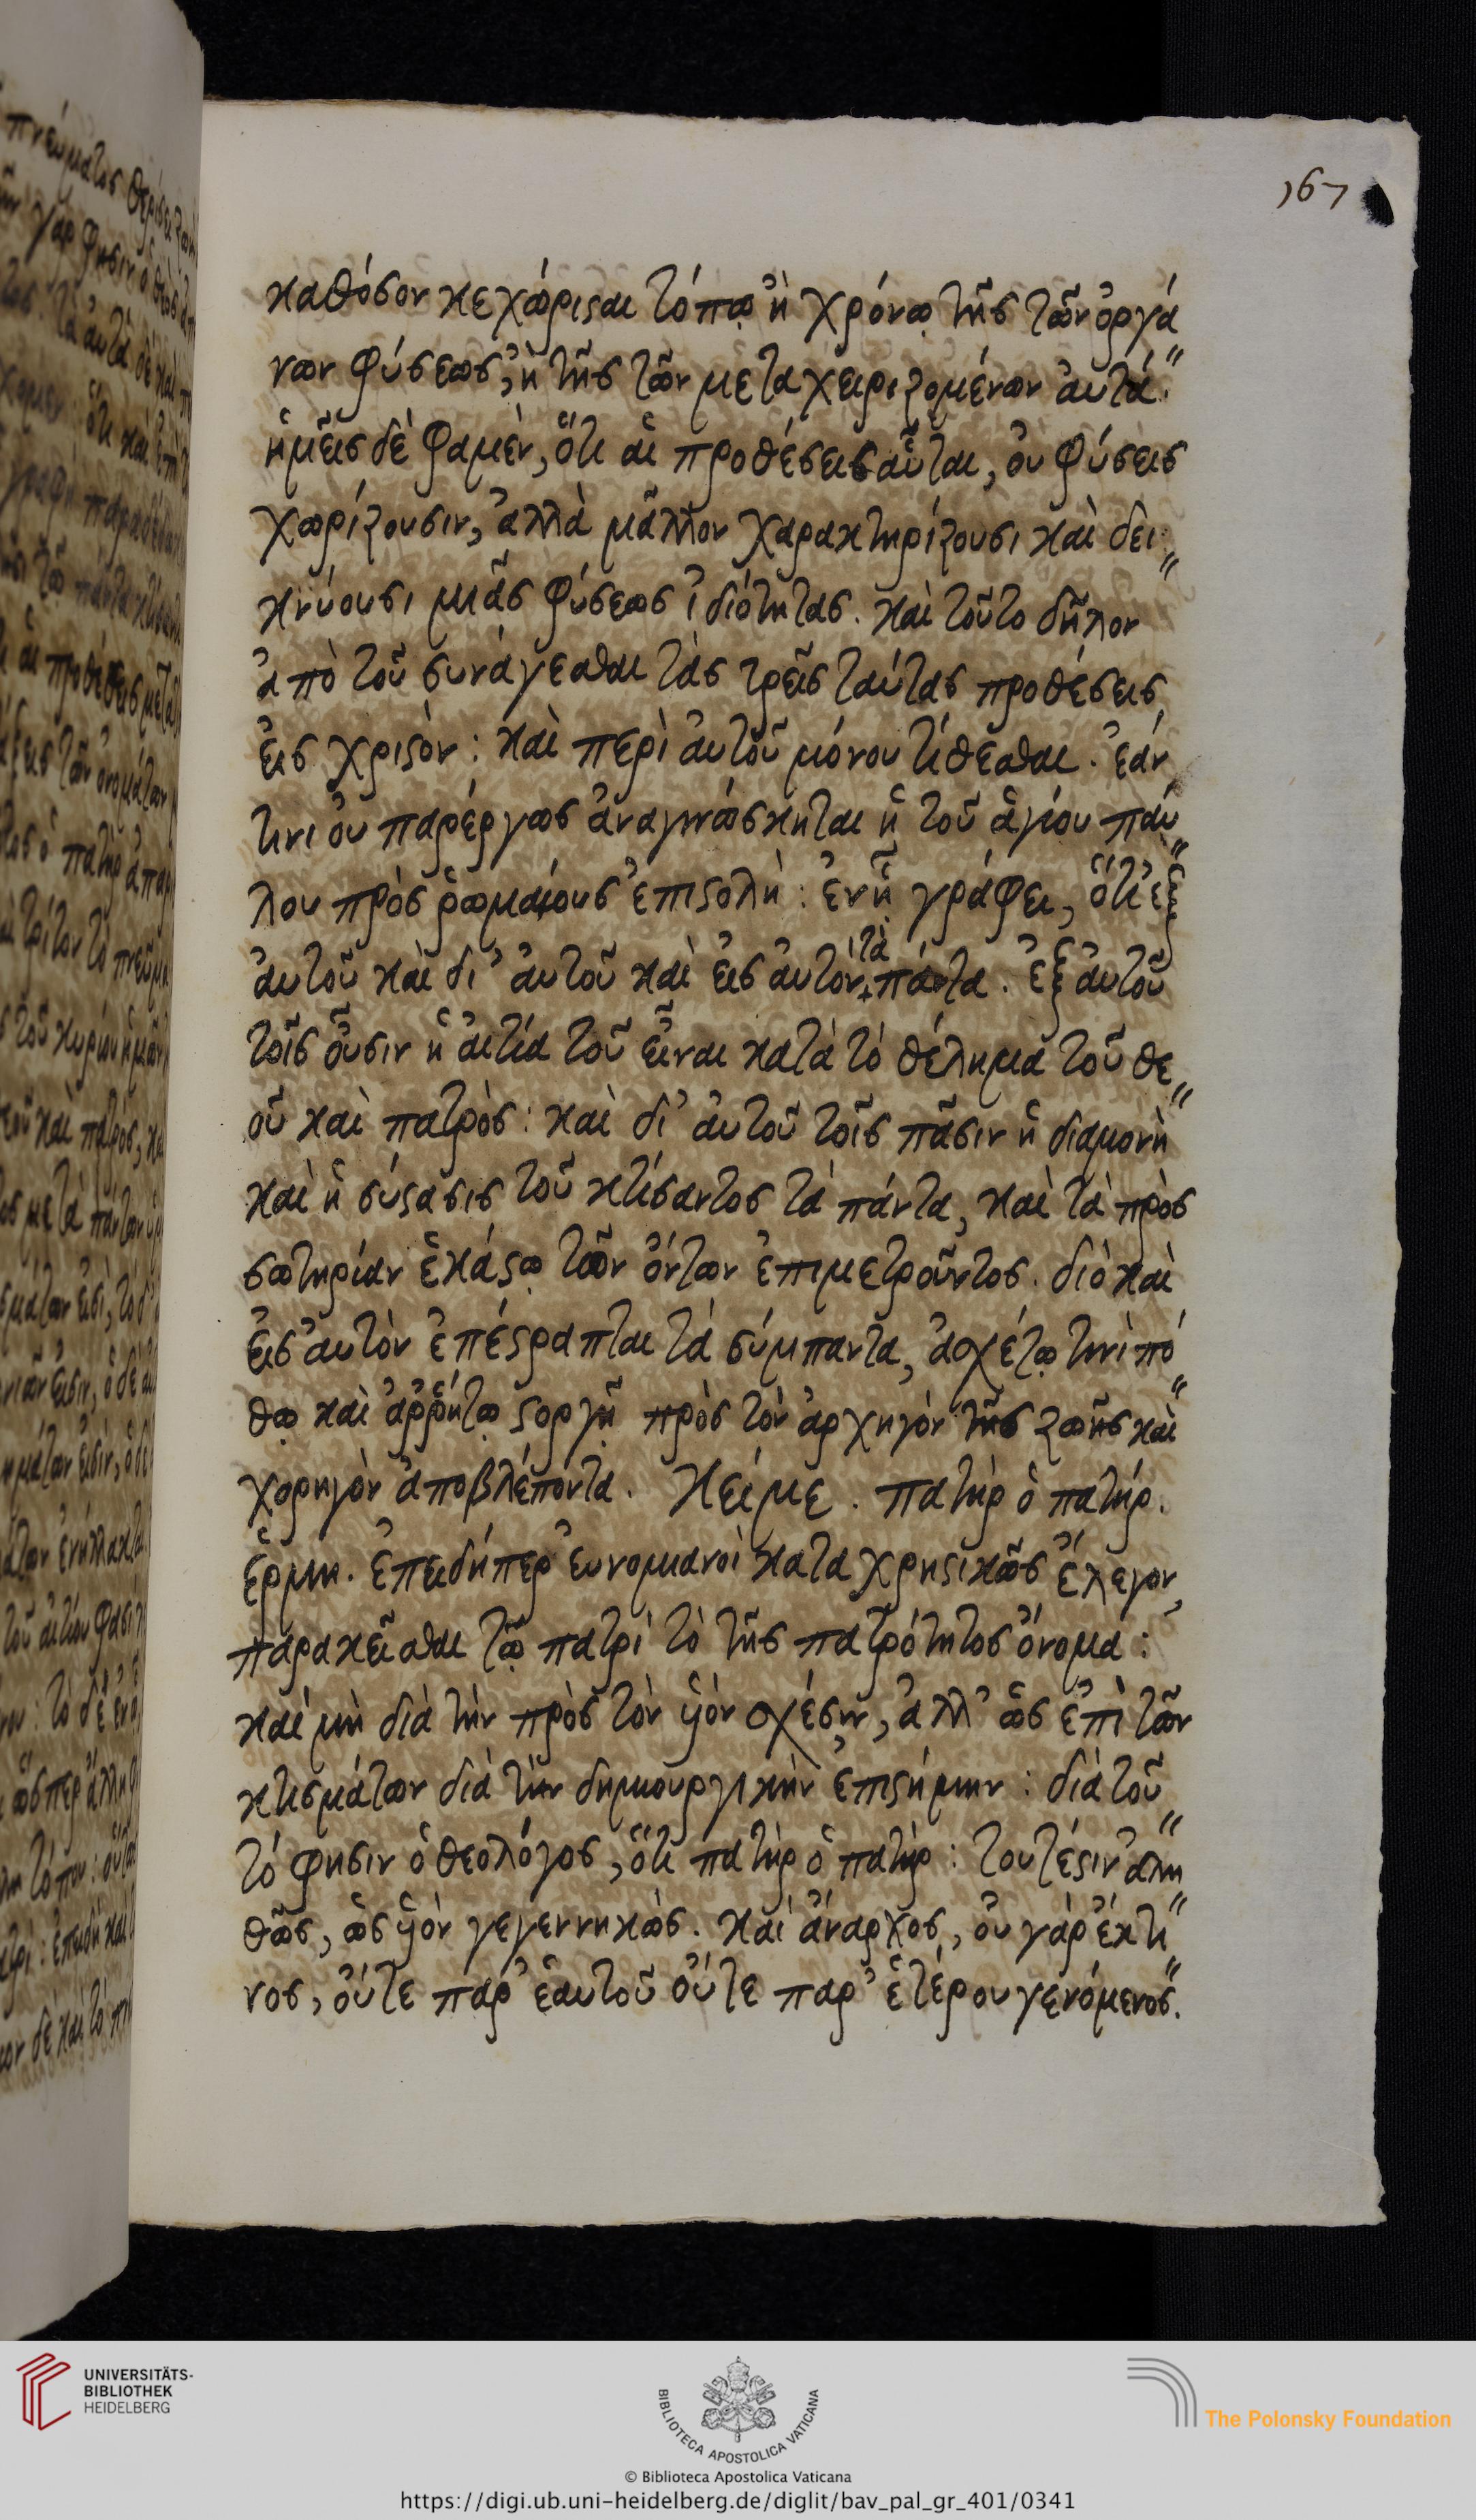 167
καθόσον κεχώρισται τόπῳ ἢ χρόνῳ τῆς τῶν ὀργά
νων φύσεως, ἢ τῆς τῶν μεταχειριζομένων ἀυτά.
ἡμεῖς δὲ φαμὲν, ὅτι αἱ προθέσεις αὗται, ὀυ φύσεις
χωρίζουσιν, ἀλλὰ μᾶλλον χαρακτηρίζουσι καὶ δει
κνύουσι μιᾶς φύσεως ἰδιότητας. καὶ τοῦτο δῆλον
ἀπὸ τοῦ συνάγεσθαι τὰς τρεῖς ταύτας προθέσεις
ἐις χριστὸν: καὶ περὶ ἀυτοῦ μόνου τίθεσθαι. ἐάν
τινι ὀυ παρέργως ἀναγινώσκηται ἡ τοῦ ἁγίου πάυ
λου πρὸς ῥωμαίους ἐπιστολὴ: ἐν ᾗ γράφει, ὅτι ἐξ
ἀυτοῦ καὶ δι' ἀυτοῦ καὶ ἐις ἀυτὸν τὰ πάντα. ἐξ ἀυτοῦ
τοῖς οὖσιν ἡ ἀιτία τοῦ εἶναι κατὰ τὸ θέλημα τοῦ θε
οῦ καὶ πατρὸς: καὶ δι' ἀυτοῦ τοῖς πᾶσιν ἡ διαμονὴ
καὶ ἡ σύστασις τοῦ κτίσαντος τὰ πάντα, καὶ τὰ πρὸς
σωτηρίαν ἑκάστῳ τῶν ὄντων ἐπιμετροῦντος. διὸ καὶ
ἐις ἀυτὸν ἐπέστραπται τὰ σύμπαντα, ἀσχέτῳ τινὶ πό
θῳ καὶ ἀῤῥήτῳ στοργῇ πρὸς τὸν ἀρχηγὸν τῆς ζωῆς καὶ
χορηγὸν ἀποβλέποντα. Κείμε. πατὴρ ὁ πατήρ.
ἑρμη. ἐπειδήπερ ἐυνομιανοὶ καταχρηστικῶς ἔλεγον,
παρακεῖσθαι τῷ πατρὶ τὸ τῆς πατρότητος ὄνομα:
καὶ μὴ διὰ τὴν πρὸς τὸν ὑιὸν σχέσιν, ἀλλ' ὡς ἐπὶ τῶν
κτισμάτων διὰ τὴν δημιουργικὴν ἐπιστήμην: διὰ τοῦ
τό φησιν ὁ θεολόγος, ὅτι πατὴρ ὁ πατήρ: τουτέστιν ἀλη
θῶς, ὡς ὑιὸν γεγεννηκὼς. καὶ ἄναρχος, ὀυ γὰρ ἔκ τι
νος, ὄυτε παρ' ἑαυτοῦ ὄυτε παρ' ἑτέρου γενόμενος.
UNIVERSITÄTS-
BIBLIOTHEK
HEIDELBERG
BIBLIOTECA APOSTOLICA VATICANA
The Polonsky Foundation
© Biblioteca Apostolica Vaticana
https://digi.ub.uni-heidelberg.de/diglit/bav_pal_gr_401/0341